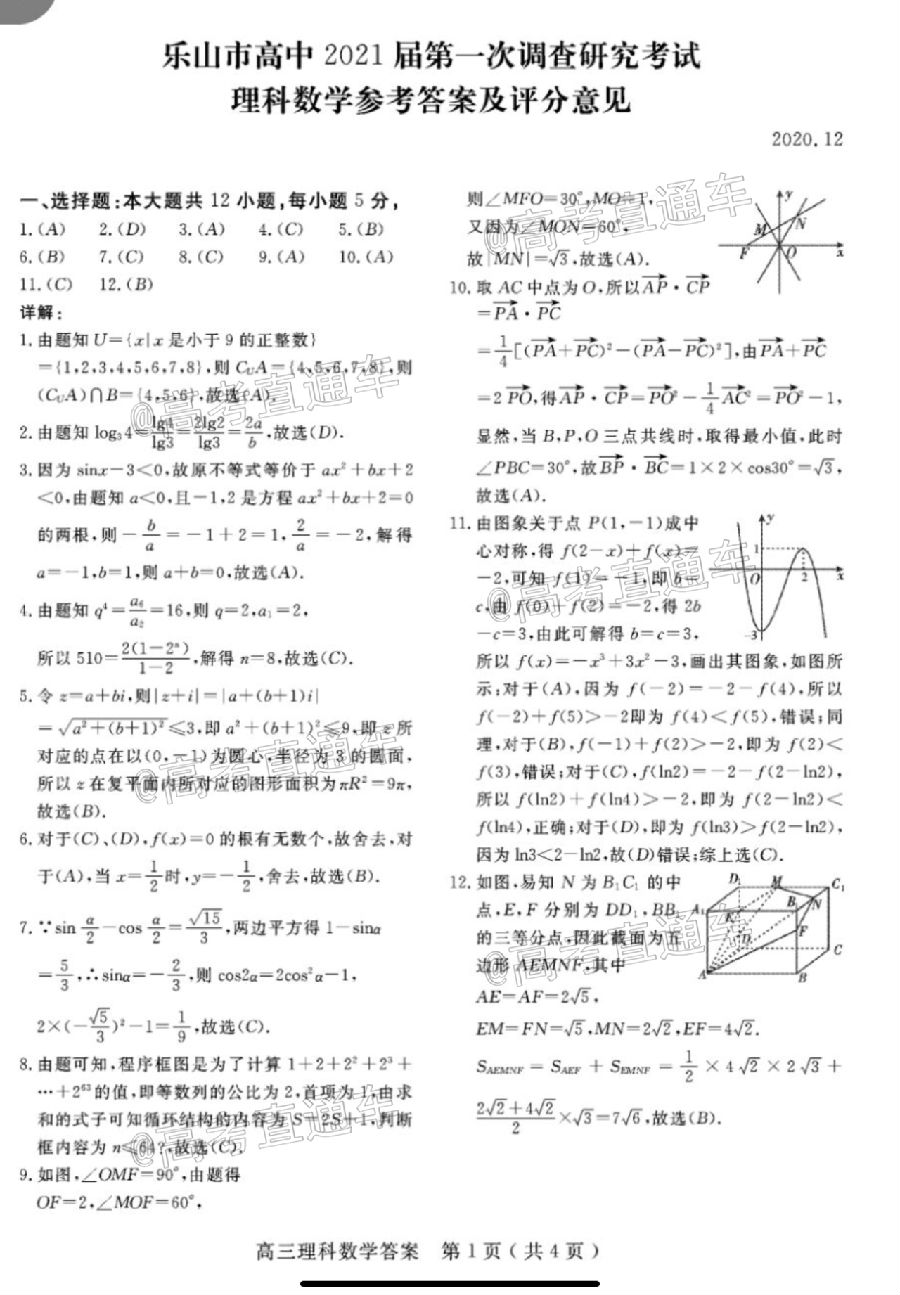 乐山市高中 2021 届第一次调查研究考试
理科数学参考答案及评分意见
2020.12
一、选择题:本大题共 12 小题,每小题 5 分,
1.(A) 2.(D) 3.(A) 4.(C) 5.(B)
6.(B) 7.(C) 8.(C) 9.(A) 10.(A)
11.(C) 12.(B)
详解:
1.由题知 U={x|x 是小于 9 的正整数}
={1,2,3,4,5,6,7,8},则 C_UA={4,5,6,7,8},则
(C_UA)∩B={4,5,6},故选(A).
2.由题知 log₃4=lg4/lg3=2lg2/lg3=2a/b,故选(D).
3.因为 sinx-3<0,故原不等式等价于 ax²+bx+2
<0,由题知 a<0,且-1,2 是方程 ax²+bx+2=0
的两根,则-b/a=-1+2=1,2/a=-2,解得
a=-1,b=1,则 a+b=0,故选(A).
4.由题知 q⁴=a₆/a₂=16,则 q=2,a₁=2,
所以 510=2(1-2ⁿ)/(1-2),解得 n=8,故选(C).
5.令 z=a+bi,则|z+i|=|a+(b+1)i|
=√(a²+(b+1)²)≤3,即 a²+(b+1)²≤9,即 z 所
对应的点在以(0,-1)为圆心,半径为 3 的圆面,
所以 z 在复平面内所对应的图形面积为 πR²=9π,
故选(B).
6.对于(C)、(D),f(x)=0 的根有无数个,故舍去,对
于(A),当 x=1/2 时,y=-1/2,舍去,故选(B).
7.∵sin α/2-cos α/2=√15/3,两边平方得 1-sinα
=5/3,∴sinα=-2/3,则 cos2α=2cos²α-1,
2×(-√5/3)²-1=1/9,故选(C).
8.由题可知,程序框图是为了计算 1+2+2²+2³+
…+2⁶³的值,即等数列的公比为 2,首项为 1,由求
和的式子可知循环结构的内容为 S=2S+1,判断
框内容为 n≤64?,故选(C).
9.如图,∠OMF=90°,由题得
OF=2,∠MOF=60°,
则∠MFO=30°,MO=1,
又因为∠MON=60°,
故|MN|=√3,故选(A).
y
M
N
F
O
x
10.取 AC 中点为 O,所以AP→·CP→
=PA→·PC→
=1/4[(PA→+PC→)²-(PA→-PC→)²],由PA→+PC→
=2PO→,得AP→·CP→=PO→²-1/4AC→²=PO→²-1,
显然,当 B,P,O 三点共线时,取得最小值,此时
∠PBC=30°,故BP→·BC→=1×2×cos30°=√3,
故选(A).
11.由图象关于点 P(1,-1)成中
心对称,得 f(2-x)+f(x)=
-2,可知 f(1)=-1,即 b=
c,由 f(0)+f(2)=-2,得 2b
-c=3,由此可解得 b=c=3,
y
1
O
2
x
-3
所以 f(x)=-x³+3x²-3,画出其图象,如图所
示:对于(A),因为 f(-2)=-2-f(4),所以
f(-2)+f(5)>-2即为 f(4)<f(5),错误;同
理,对于(B),f(-1)+f(2)>-2,即为 f(2)<
f(3),错误;对于(C),f(ln2)=-2-f(2-ln2),
所以 f(ln2)+f(ln4)>-2,即为 f(2-ln2)<
f(ln4),正确;对于(D),即为 f(ln3)>f(2-ln2),
因为 ln3<2-ln2,故(D)错误;综上选(C).
12.如图,易知 N 为 B₁C₁ 的中
点,E,F 分别为 DD₁,BB₁
的三等分点,因此截面为五
边形 AEMNF,其中
D₁
M
C₁
A₁
B₁
N
F
D
C
A
B
AE=AF=2√5,
EM=FN=√5,MN=2√2,EF=4√2.
S_AEMNF=S_AEF+S_EMNF=1/2×4√2×2√3+
(2√2+4√2)/2×√3=7√6,故选(B).
@高考直通车
@高考直通车
@高考直通车
@高考直通车
@高考直通车
@高考直通车
高三理科数学答案 第 1 页(共 4 页)